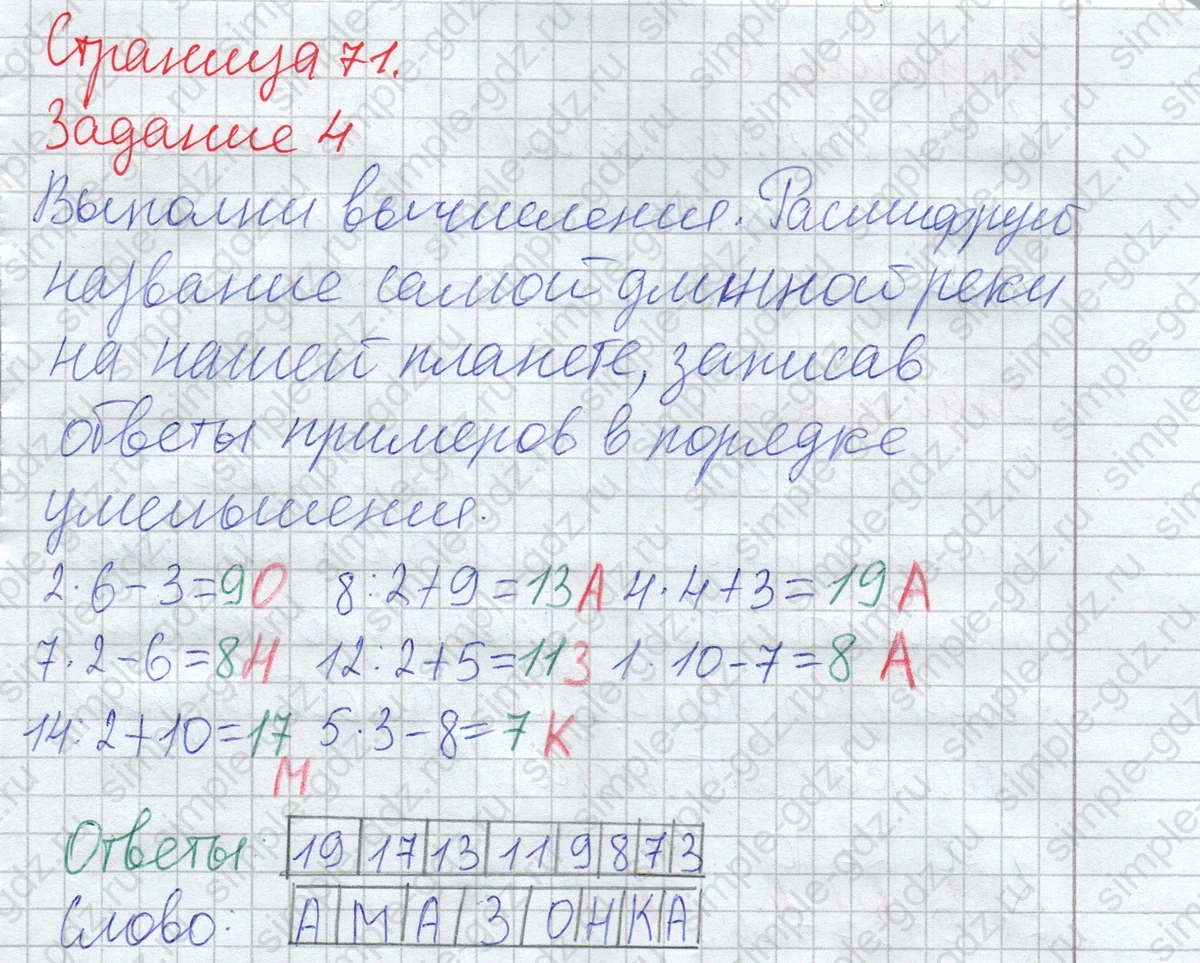 Страница 71.
Задание 4
Выполни вычисления. Расшифруй
название самой длинной реки
на нашей планете, записав
ответы примеров в порядке
уменьшения.
2·6-3=9О 8:2+9=13А 4·4+3=19А
7·2-6=8Н 12:2+5=11З 1·10-7=8 А
14:2+10=17 М 5·3-8=7 К
Ответы: 19 17 13 11 9 8 7 3
Слово: А М А З О Н К А
simple-gdz.ru